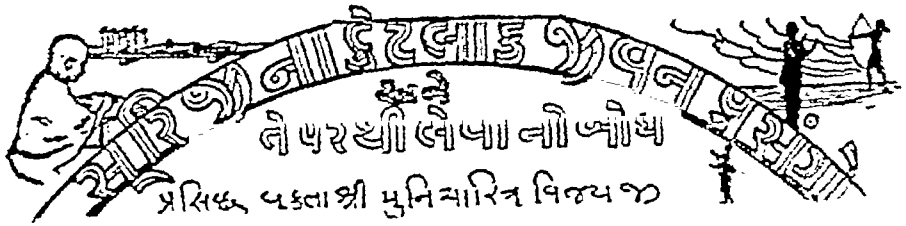 કેટલાક જીવન પ્રસંગો
અને
તે પરથી લેવાનો બોધ
પ્રસિદ્ધ વક્તા શ્રી મુનિ ચારિત્ર વિજયજી